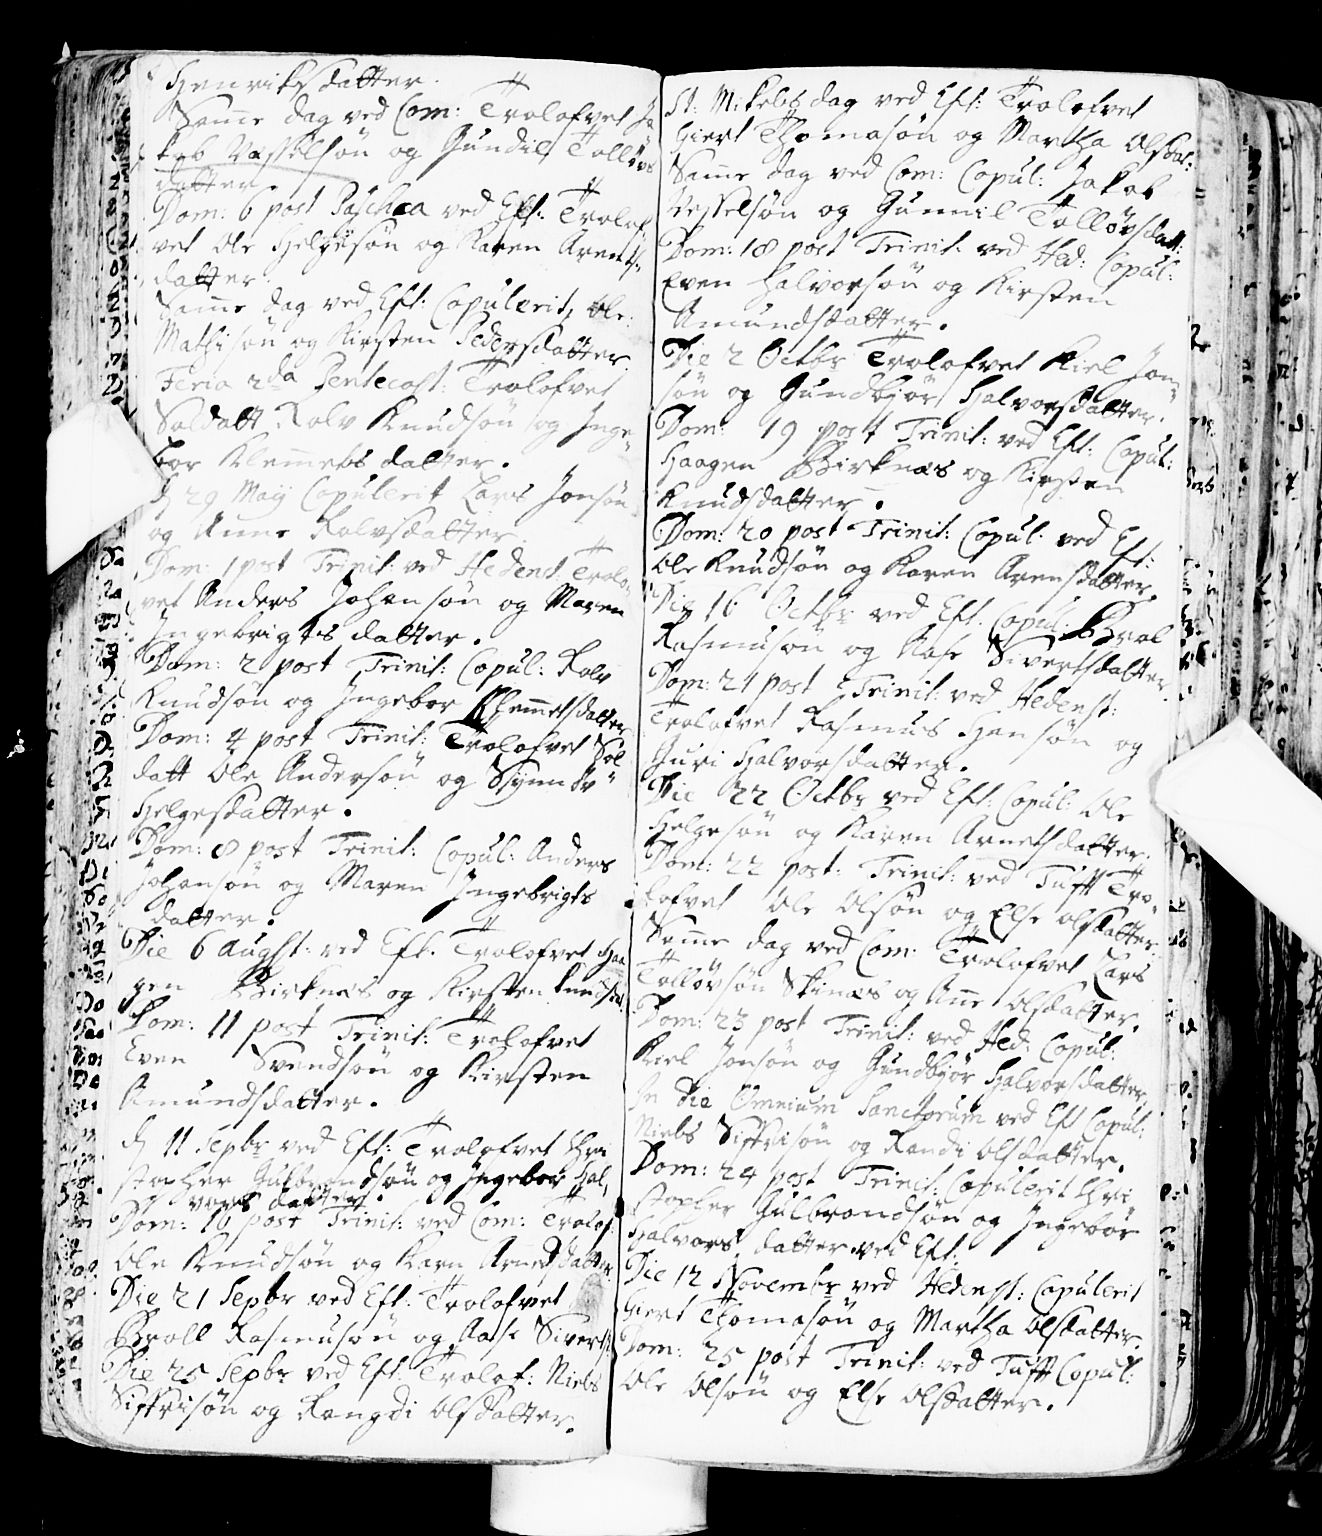 Henriksdatter.
Samme dag ved Com: Trolofvet Ja
kob Vesselsøn og Gundil Tolløvs
datter.
Dom: 6 post Pascha ved Eft: Trolof
vet Ole Helgesøn og Karen Arents
datter.
Samme dag ved Eft: Copulerit, Ole
Mathisøn og Kirsten Pedersdatter.
Feria 2da Pentecost: Trolofvet
Soldatt Rolv Knudsøn og Inge
bor Klemmetsdatter.
d 29 Maij Copulerit Lars Jonsøn
og Anne Rolvsdatter.
Dom: 1 post Trinit: ved Hedenst: Trolo
vet Anders Johansøn og Maren
Ingebrigtsdatter.
Dom: 2 post Trinit: Copul: Rolv
Knudsøn og Ingebor Khemmetsdatter
Dom: 4 post Trinit: Trolofvet Sol
datt Ole Andersøn og
Helgesdatter.
Dom: 8 post Trinit: Copul: Anders
Johansøn og Maren Ingebrigts
datter.
Die 6 Augst: ved Eft. Trolofvet Haa
gen Birknæs og Kirsten Knudsdat:
Dom: 11 post Trinit: Trolofvet
Even Svendsøn og Kirsten
Amundsdatter.
d 11 Sepbr ved Eft: Trolofvet Chri
stopher Gulbrandsøn og Ingebor Hal
vorsdatter.
Dom: 16 post Trinit: ved Com: Trolof:
Ole Knudsøn og Karn Arnesdatter
Die 21 Sepbr ved Eft: Trolofvet
Broll Rasmusøn og Aase Siverts:
Die 25 Sepbr ved Eft: Trolof: Niels
Siffrisøn og Rangdi Olsdatter.
St: Mikels dag ved Eft: Trolofvet
Giert Thomasøn og Martha Olsdat:
Samme dag ved Com: Copul: Jakob
Vesselsøn og Gunnil Tolløvsdatt:
Dom: 18 post Trinit: ved Hed: Copul:
Even Halvorsøn og Kirsten
Amundsdatter.
Die 2 Octbr Trolofvet Kiel Jon
søn og Gundbjør Halvorsdatter.
Dom: 19 post Trinit: ved Eft: Copul:
Haagen Birknæs og Kirsten
Knudsdatter.
Dom: 20 post Trinit: Copul: ved Eft:
Ole Knudsøn og Karen Arensdatter.
Die 16 Octbr ved Eft: Copul: Brol
Rasmusøn og Aase Sivertsdatter.
Dom: 21 post Trinit: ved Hedenst:
Trolofvet Rasmus Hansøn og
Guri Halvorsdatter.
Die 22 Octbr ved Eft: Copul: Ole
Helgesøn og Karen Arnetsdatter.
Dom: 22 post: Trinit: ved Tufft Tro
lofvet Ole Olsøn og Else Olsdatter.
Samme dag ved Com: Trolofvet Lars
Tolløvsøn Skinæs og Anne Olsdatter.
Dom: 23 post Trinit: ved Hed: Copul:
Kiel Jonsøn og Gundbjør Halvorsdatter.
In die Omnium Sanctorum ved Eft Copul:
Niels Siffrisøn og Randi Olsdatter.
Dom: 24 post Trinit: Copulerit Chri
stopher Gulbrandsøn og Ingebor
Halvorsdatter ved Eft:
Die 12 Novembr ved Hedenst: Copulerit
Giert Thomasøn og Martha Olsdatter.
Dom: 25 post Trinit: ved Tufft Copul:
Ole Olsøn og Else Olsdatter.